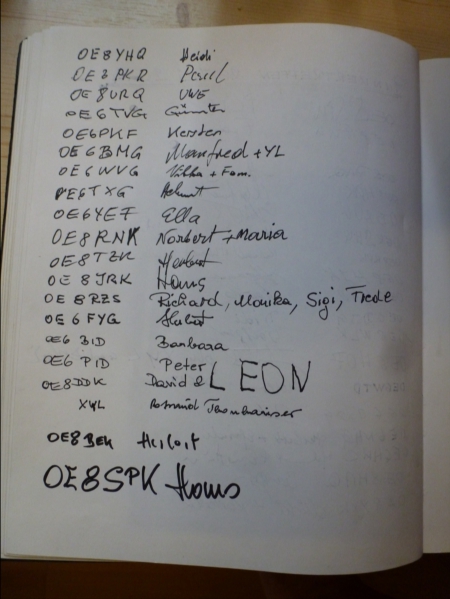 OE8YHQ Heidi
OE8PKR
OE8URQ UWE
OE6TVG Günter
OE6PKF Kersten
OE6BMG Manfred + YL
OE6WVG + Fam.
OE6TXG Helmut
OE6YEF Ella
OE8RNK Norbert + Maria
OE8TZK Herbert
OE8JRK Hans
OE8RZS Richard, Monika, Sigi, Trede
OE6FYG Hubert
OE6BID Barbara
OE6PID Peter
OE8DDK David & LEON
XYL
OE8BEK
OE8SPK Hans